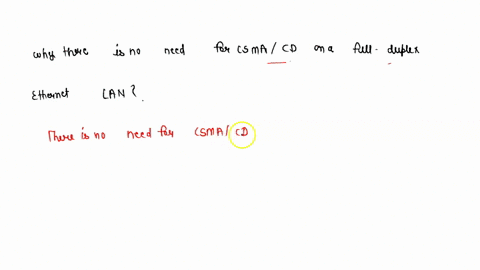 why there is no need for CSMA/CD on a full-duplex
Ethernet LAN?
There is no need for CSMA/CD